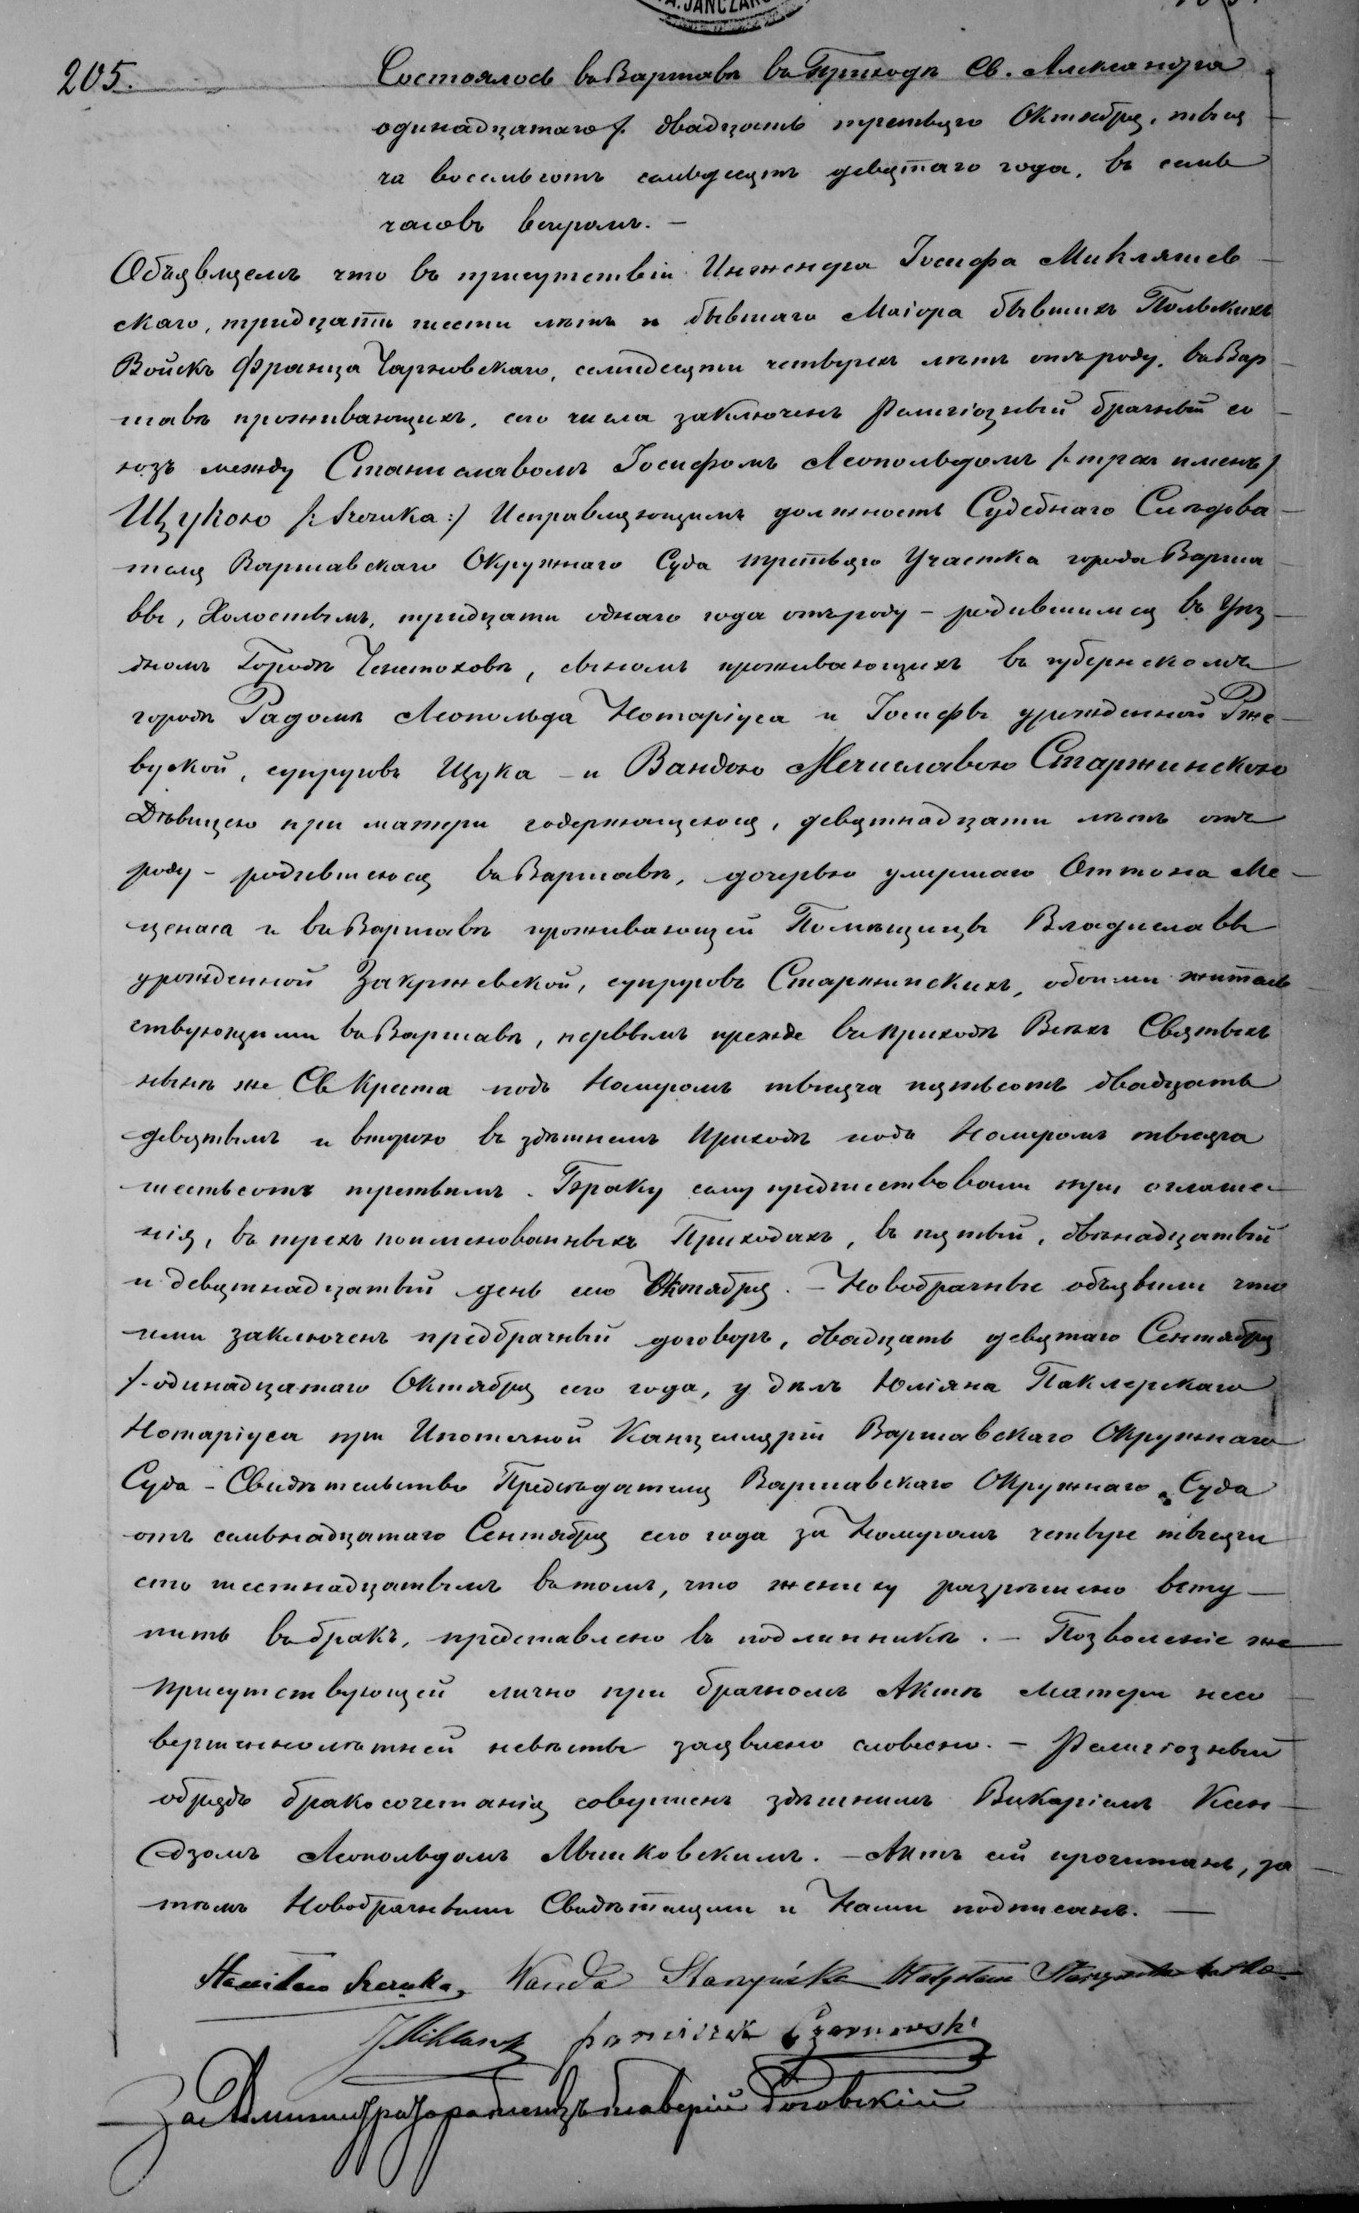 A. JANCZAR
205.
Состоялось въ Варшавѣ въ Приходѣ Св. Александра
одинадцатаго /. двадцать третьяго Октября, тыся
ча восемьсотъ семьдесятъ девятаго года, въ семь
часовъ вечеромъ. —
Объявляемъ что въ присутствіи Инженера Іосифа Микляшев
скаго, тридцати шести лѣтъ и бывшаго Маіора бывшихъ Польскихъ
Войскъ Франца Чарновскаго, семидесяти четырехъ лѣтъ отъ роду, въ Вар
шавѣ проживающихъ, сего числа заключенъ Религіозный брачный со
юзъ между Станиславомъ Іосифомъ Леопольдомъ /: трехъ именъ /
Щукою /: Szczuka :/ Исправляющимъ должность Судебнаго Слѣдова
теля Варшавскаго Окружнаго Суда третьяго Участка города Варша
вы, Холостымъ, тридцати одного года отъ роду – родившимся въ Уѣз
дномъ Городѣ Ченстоховѣ, сыномъ проживающихъ въ губернскомъ
городѣ Радомѣ Леопольда Нотаріуса и Іосифы урожденной Рже
вуской, супруговъ Щука – и Вандою Мечиславою Старжинскою
Дѣвицею при матери содержающеюся, девятнадцати лѣтъ отъ
роду – родившеюся въ Варшавѣ, дочерью умершаго Оттона Ме
ценаса и въ Варшавѣ проживающей Помѣщицы Владиславы
урожденной Закржевской, супруговъ Старжинскихъ, обоими житель
ствующими въ Варшавѣ, первымъ прежде въ приходѣ Всѣхъ Святыхъ
нынѣ же Св Креста подъ Номеромъ тысяча пятьсотъ двадцать
девятымъ и второю въ здѣшнемъ Приходѣ подъ Номеромъ тысяча
шестьсотъ третьимъ. Браку сему предшествовали три оглаше
нія, въ трехъ поименованныхъ Приходахъ, въ пятый, двѣнадцатый
и девятнадцатый день сего Октября. – Новобрачные объявили что
ими заключенъ предбрачный договоръ, двадцать девятаго Сентября
/. одинадцатаго Октября сего года, у дѣлъ Юліяна Паклерскаго
Нотаріуса при Ипотечной Канцеляріи Варшавскаго Окружнаго
Суда – Свидѣтельство Предсѣдателя Варшавскаго Окружнаго Суда
отъ семьнадцатаго Сентября сего года за Номеромъ четыре тысячи
сто шестнадцатымъ въ томъ, что жениху разрѣшено всту
пить въ бракъ, представлено въ подлинникѣ. – Позволеніе же
присутствующей лично при брачномъ Актѣ матери несо
вершеннолѣтней невѣсты заявлено словесно. – Религіозный
обрядъ бракосочетанія совершенъ здѣшнимъ Викаріемъ Ксен
дзомъ Леопольдомъ Лышковскимъ. – Актъ сей прочитанъ, за
тѣмъ Новобрачными Свидѣтелями и Нами подписанъ. —
Stanisław Szczuka, Wanda Starzyńska Władysława Starzyńska matka
J Miklaszewski Franciszek Czarnowski
За Администратора Ксендзъ Ксаверій Роговскій